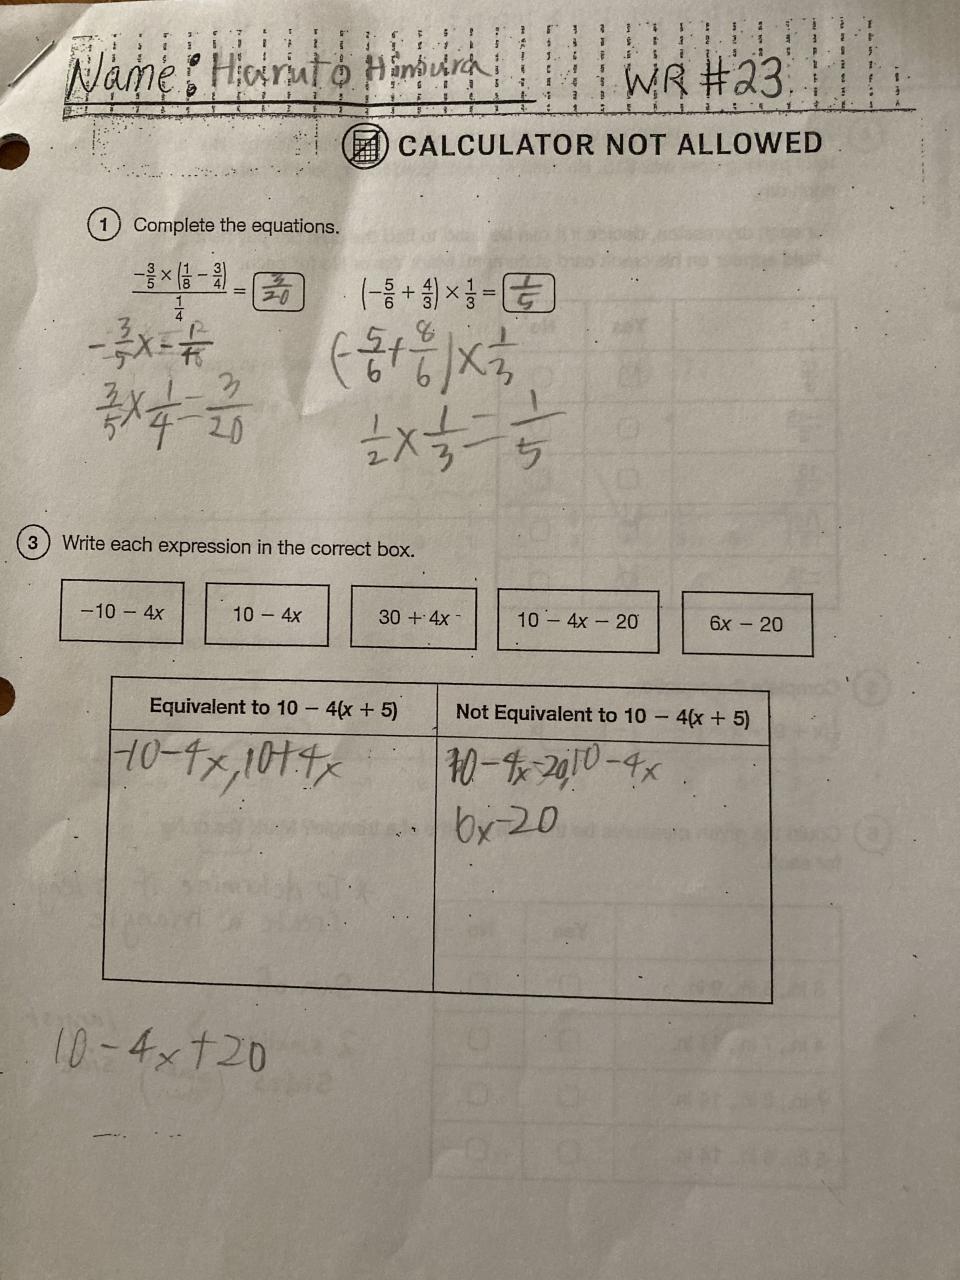 Name: Haruto WR #23
CALCULATOR NOT ALLOWED
1 Complete the equations.
(-3/5 × (1/8 - 3/4)) / (1/4) = 3/20
(-5/6 + 4/3) × 1/3 = 1/5
-3/5 x -
3/5 x 1/4 = 3/20
(-5/6 + 8/6) x 1/3
1/2 x 1/3 = 1/5
3 Write each expression in the correct box.
-10 - 4x 10 - 4x 30 + 4x 10 - 4x - 20 6x - 20
Equivalent to 10 - 4(x + 5) Not Equivalent to 10 - 4(x + 5)
-10-4x, 10+4x 10-4x-20, 10-4x
6x-20
10-4x+20